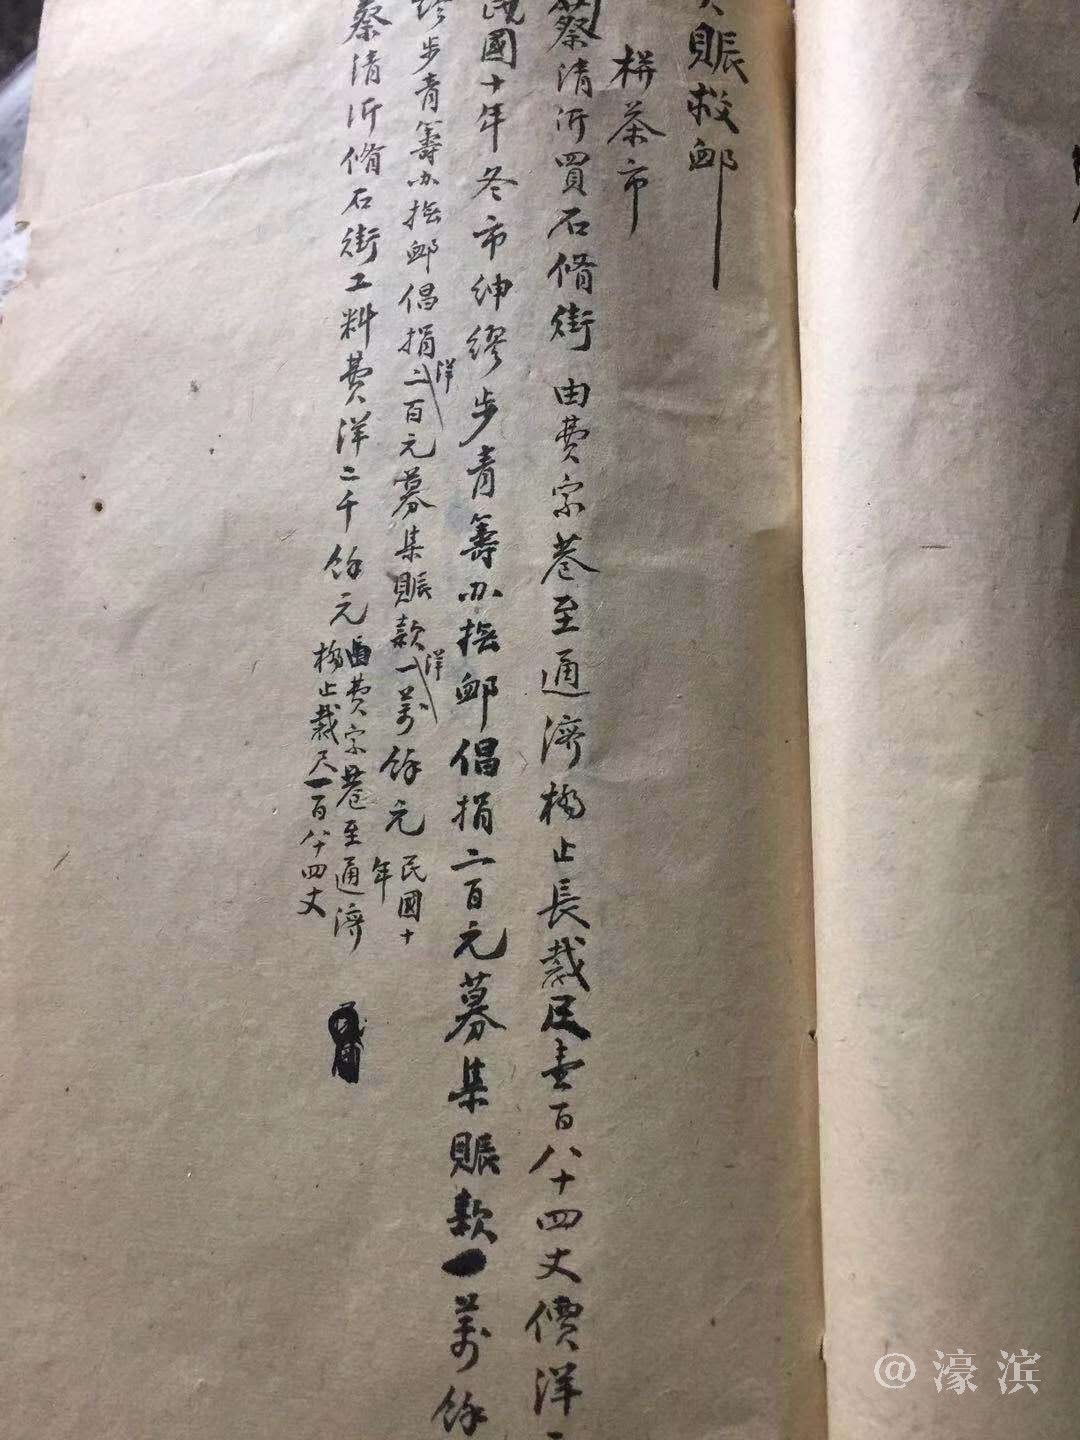 賑救䘏
栟茶市
蔡清沂買石脩街 由費宗巷至通濟橋止長裁尺壹百八十四丈價洋二
民國十年冬市紳繆步青籌办撫䘏倡捐二百元募集賑款一萬餘
繆步青籌办撫䘏倡捐洋二百元募集賑款洋一萬餘元 民國十年
蔡清沂脩石街工料費洋二千餘元 由費宗巷至通濟橋止裁尺一百八十四丈
@濠滨